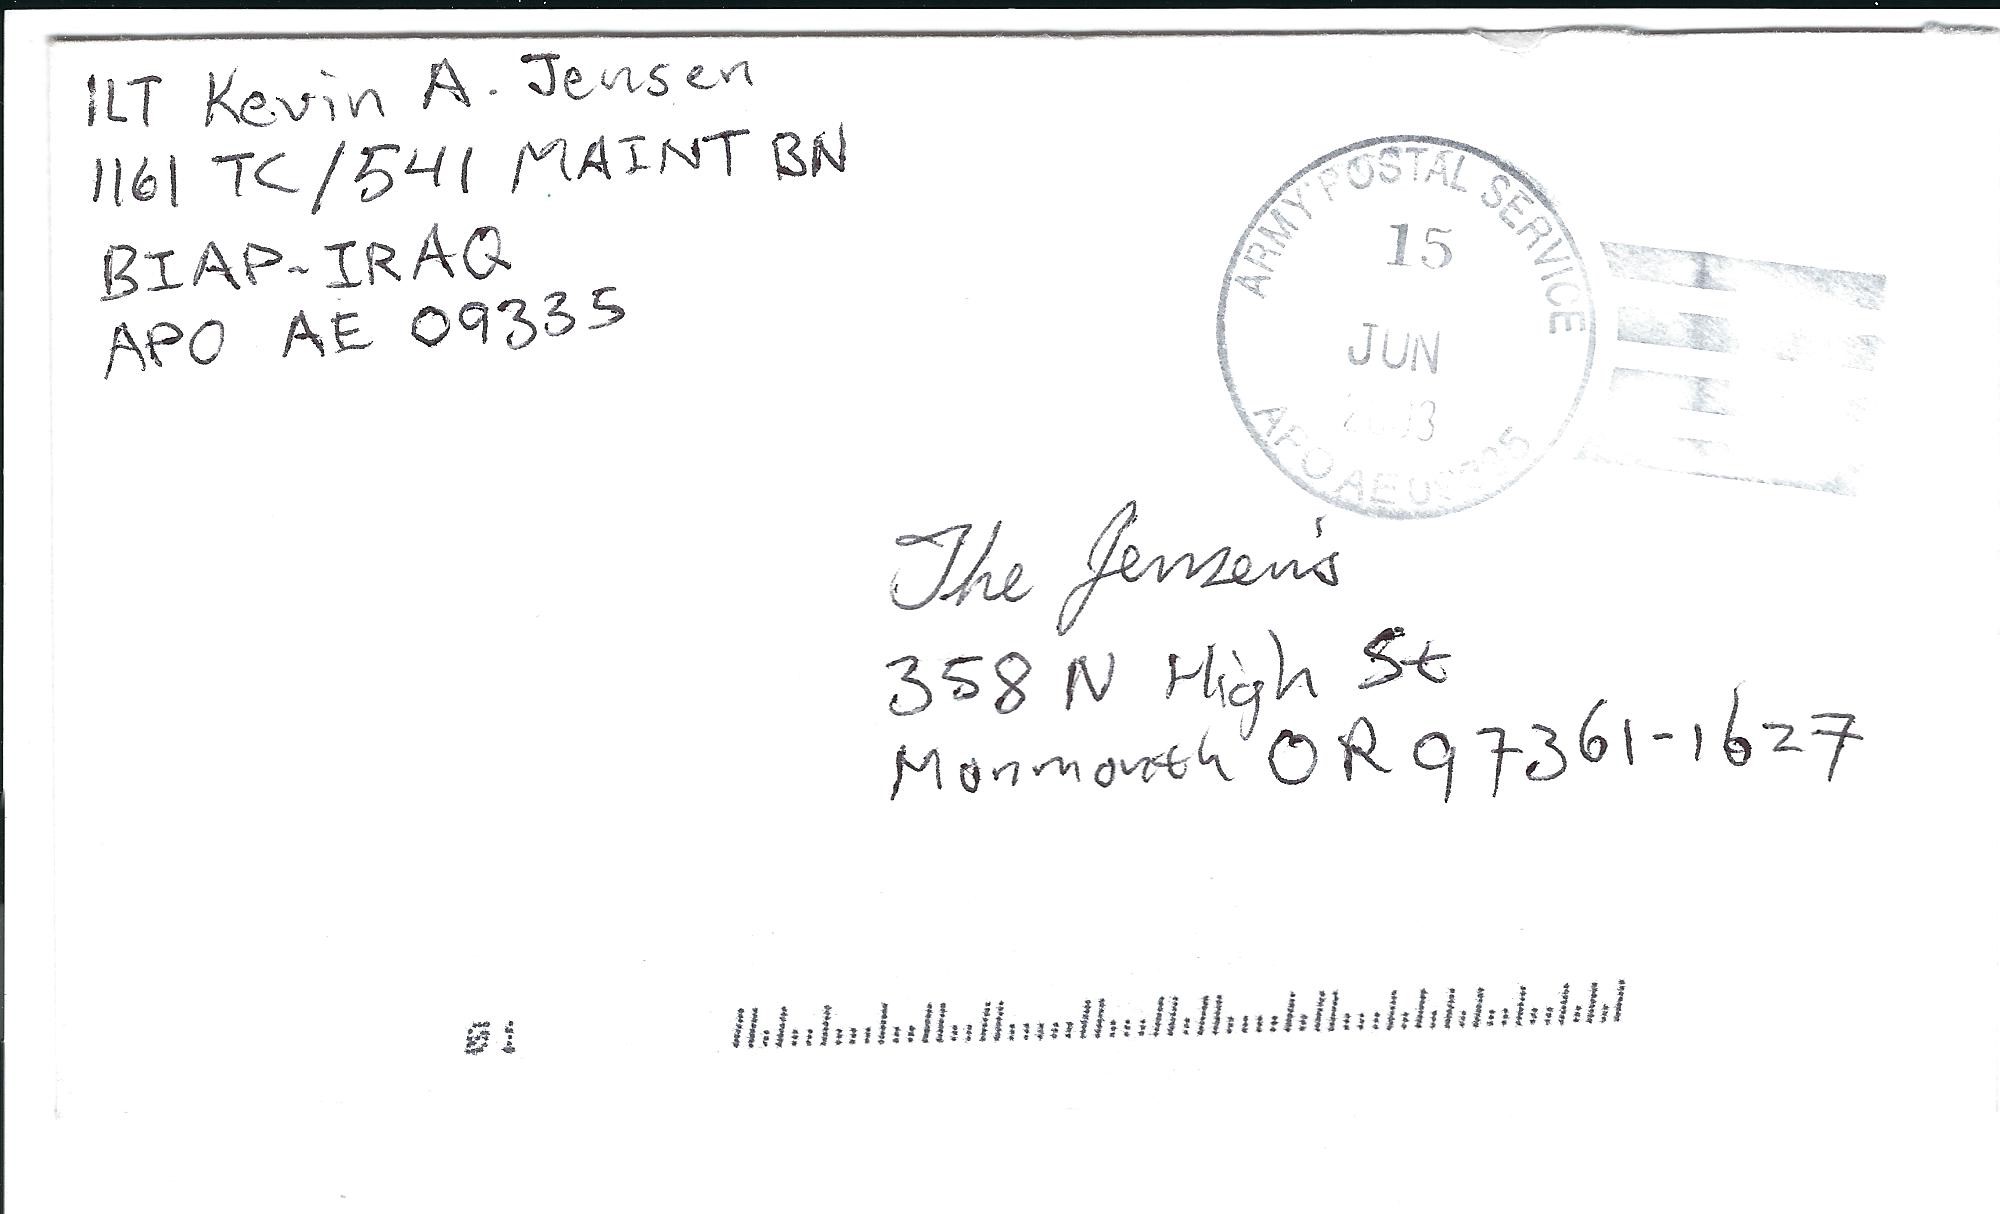 1LT Kevin A. Jensen
1161 TC/541 MAINT BN
BIAP-IRAQ
APO AE 09335
ARMY POSTAL SERVICE
15
JUN
2003
APO AE 09335
The Jensen's
358 N High St
Monmouth OR 97361-1627